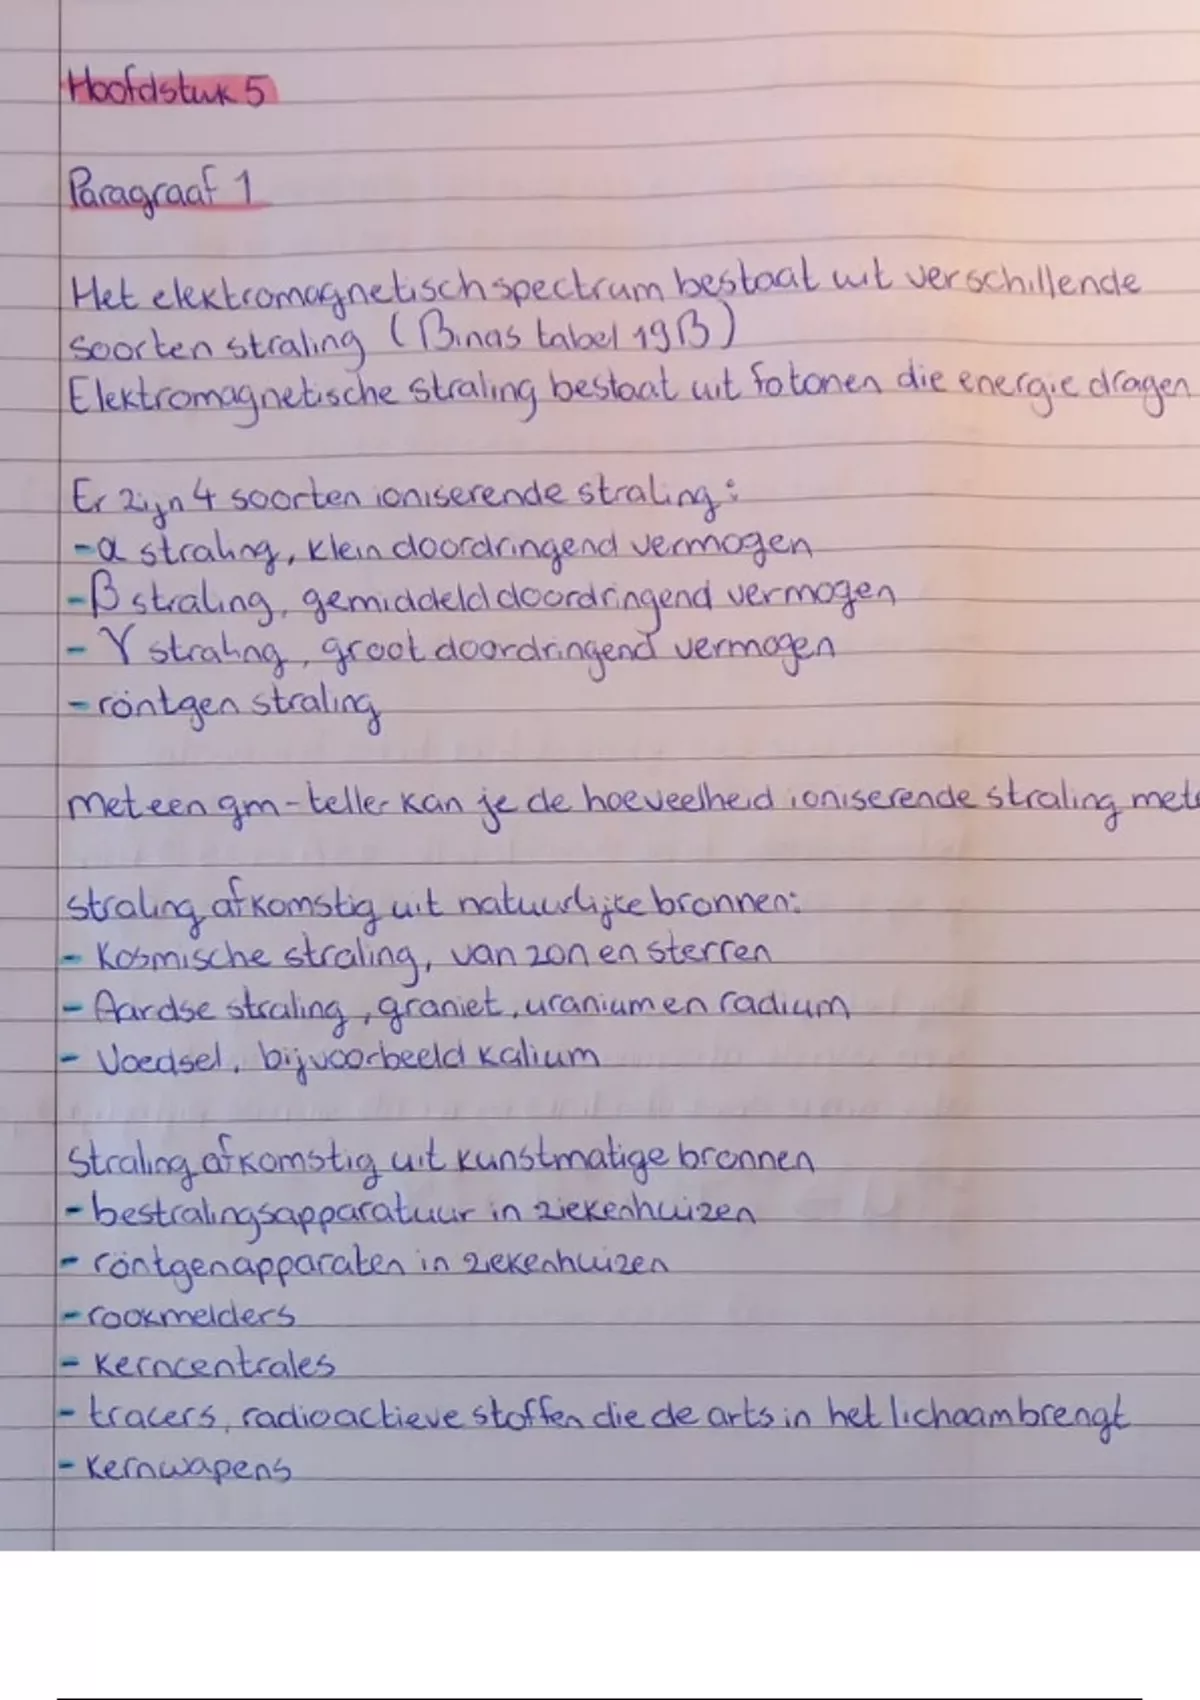 Hoofdstuk 5
Paragraaf 1
Het elektromagnetisch spectrum bestaat uit verschillende
soorten straling (Binas tabel 19B)
Elektromagnetische straling bestaat uit fotonen die energie dragen
Er zijn 4 soorten ioniserende straling:
- α straling, klein doordringend vermogen
- β straling, gemiddeld doordringend vermogen
- γ straling, groot doordringend vermogen
- röntgen straling
met een gm-teller kan je de hoeveelheid ioniserende straling mete
straling afkomstig uit natuurlijke bronnen:
- Kosmische straling, van zon en sterren
- Aardse straling, graniet, uranium en radium
- Voedsel, bijvoorbeeld kalium
Straling afkomstig uit kunstmatige bronnen
- bestralingsapparatuur in ziekenhuizen
- röntgenapparaten in ziekenhuizen
- rookmelders
- kerncentrales
- tracers, radioactieve stoffen die de arts in het lichaam brengt
- kernwapens